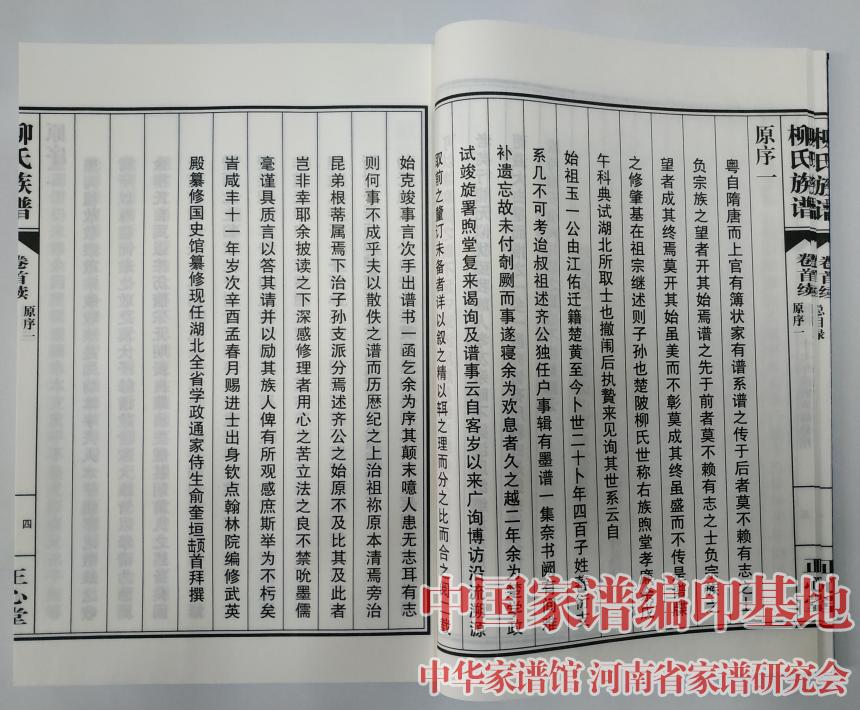 柳氏族谱
卷首续
原序一
原序一
粤自隋唐而上官有簿状家有谱系谱之传于后者莫不赖有志之士
负宗族之望者开其始焉谱之先于前者莫不赖有志之士负宗族之
望者成其终焉莫开其始虽美而不彰莫成其终虽盛而不传是谱牒
之修肇基在祖宗继述则子孙也楚陂柳氏世称右族煦堂孝廉
午科典试湖北所取士也撤闱后执贽来见询其世系云自
始祖玉一公由江佑迁籍楚黄至今卜世二十卜年四百子姓
系几不可考迨叔祖述齐公独任户事辑有墨谱一集奈书阙
补遗忘故未付剞劂而事遂寝余为欢息者久之越二年余为楚学政
试竣旋署煦堂复来谒询及谱事云自客岁以来广询博访沿流溯源
取前之
订未备者详以叙之精以
之理而分之比而合之
始克竣事言次手出谱书一函乞余为序其颠末噫人患无志耳有志
则何事不成乎夫以散佚之谱而历歴纪之上治祖祢原本清焉旁治
昆弟根蒂属焉下治子孙支派分焉述齐公之始原不及比其及此者
岂非幸耶余披读之下深感修理者用心之苦立法之良不禁吮墨儒
毫谨具质言以答其请并以励其族人俾有所观感庶斯举为不朽矣
旹咸丰十一年岁次辛酉孟春月赐进士出身钦点翰林院编修武英
殿纂修国史馆纂修现任湖北全省学政通家侍生俞奎垣頔首拜撰
柳氏族谱
卷首续
原序一
四
正心堂
中国家谱编印基地
中华家谱馆 河南省家谱研究会